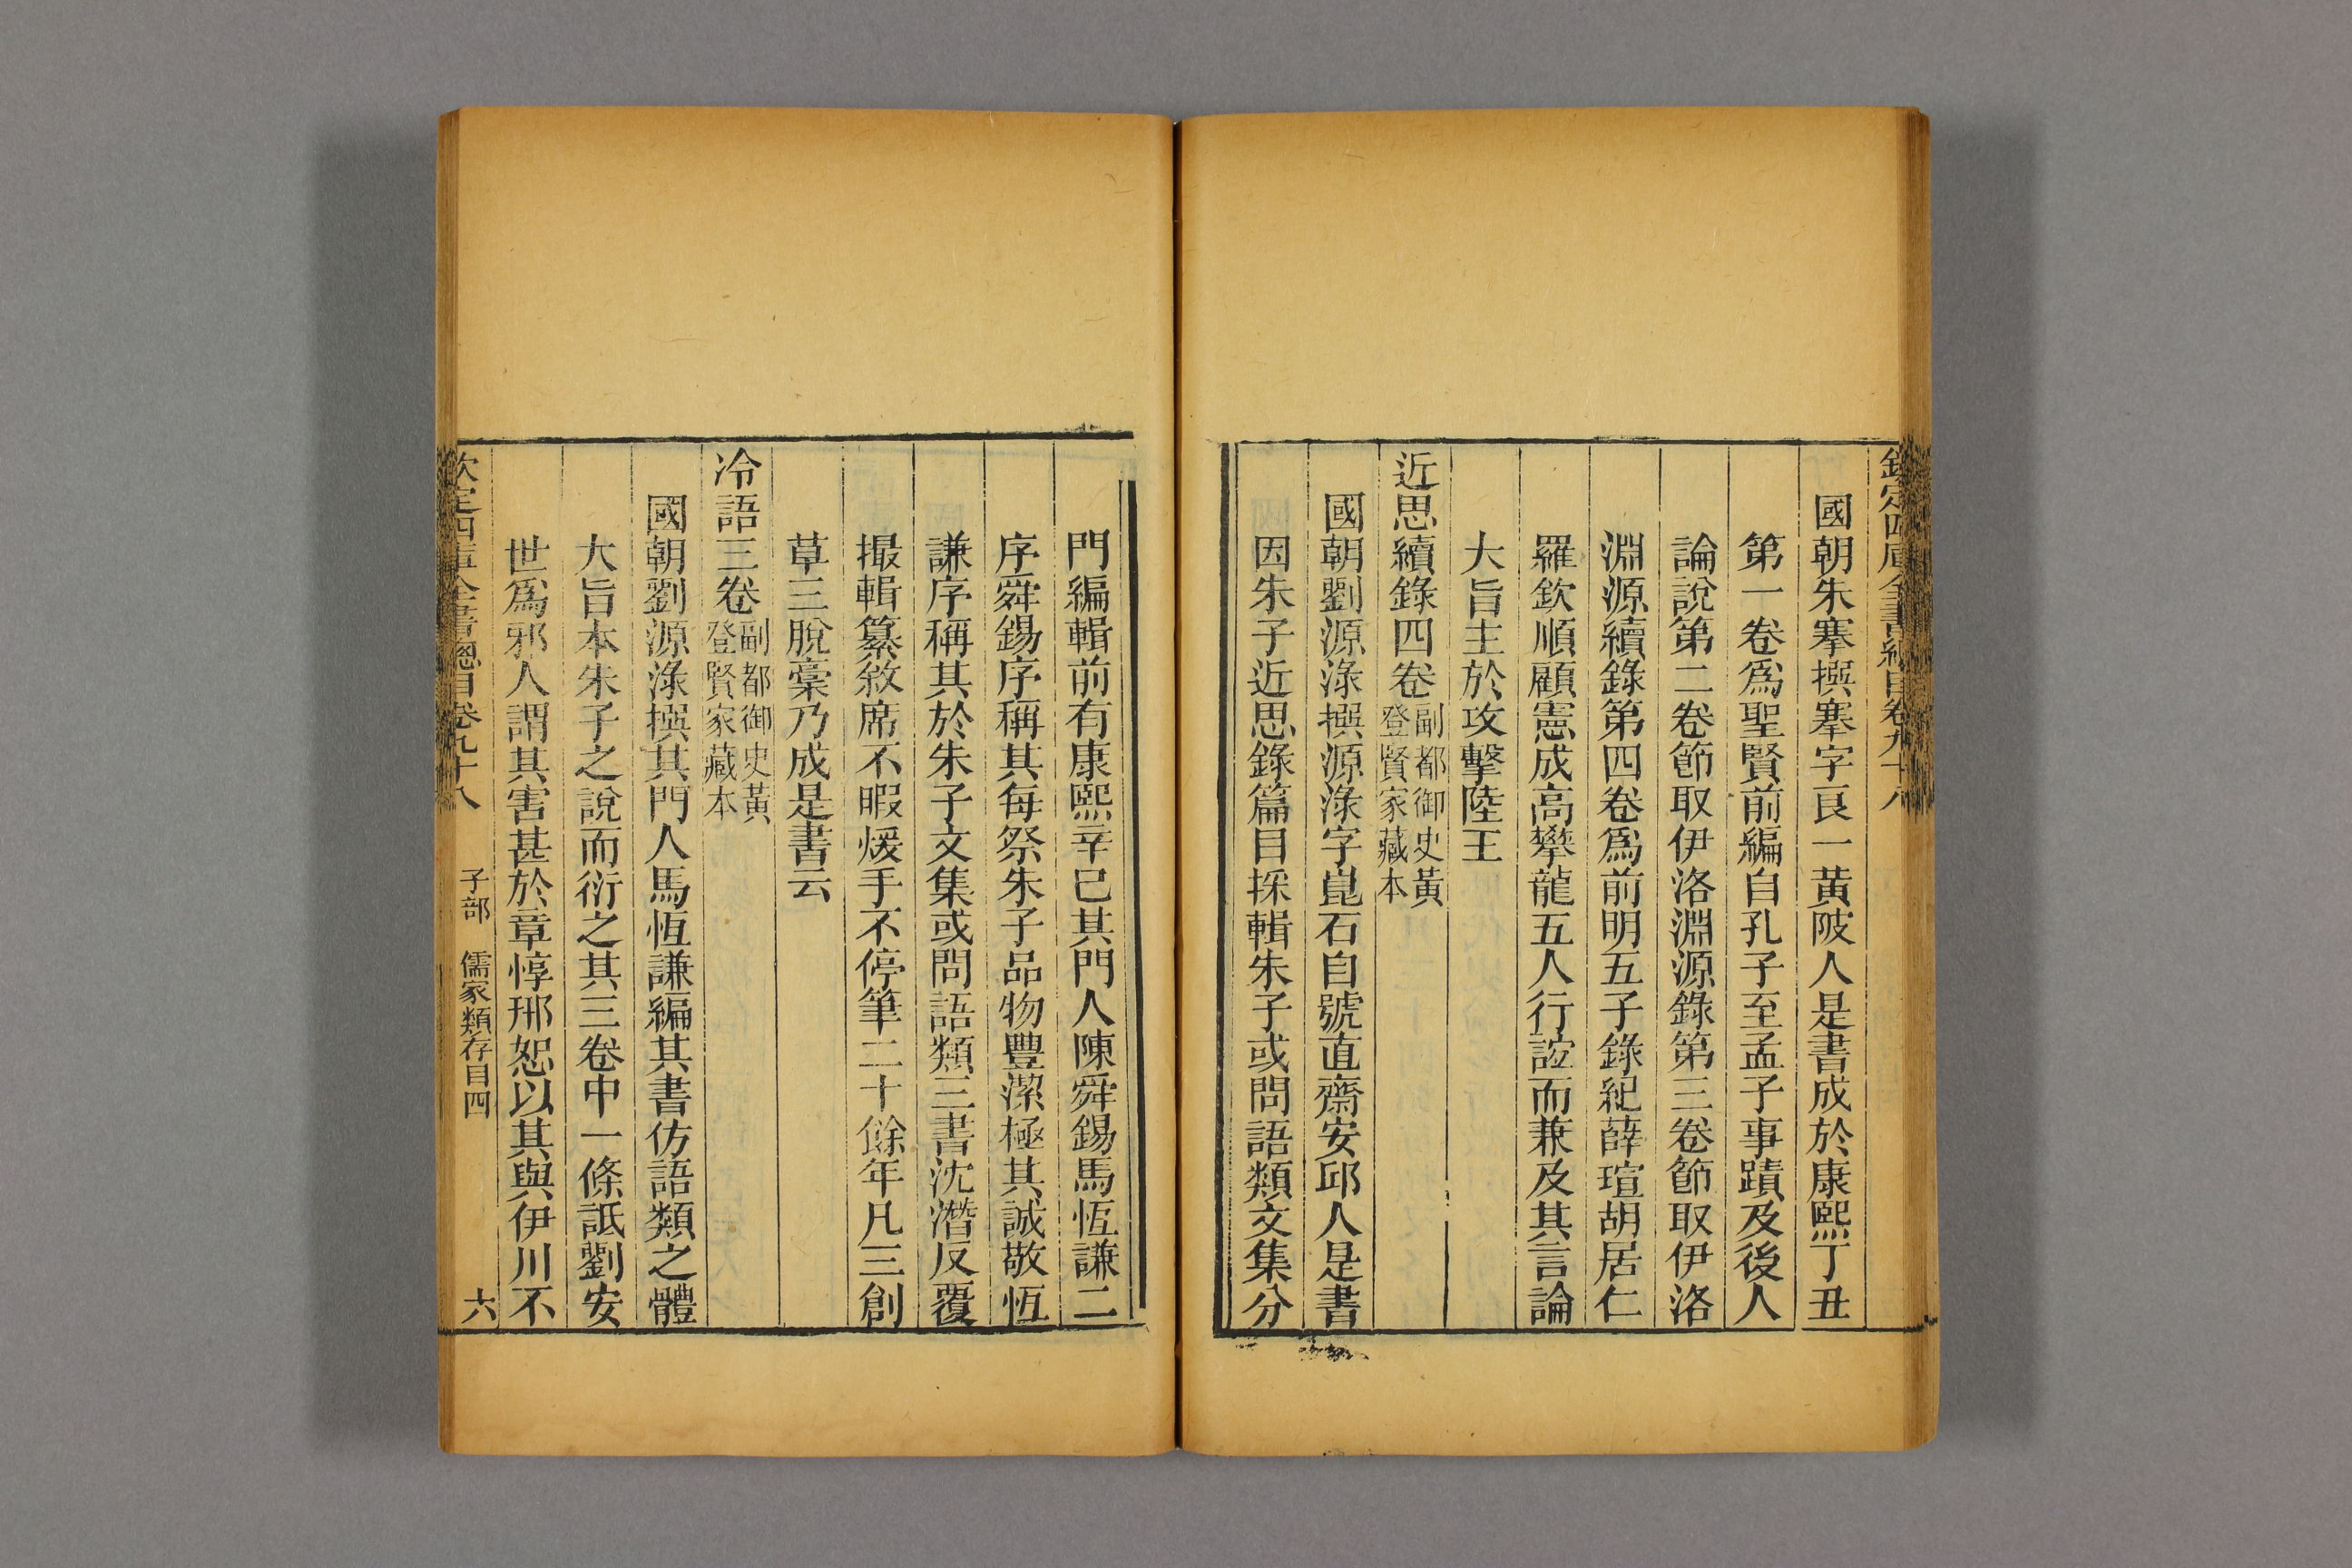 欽定四庫全書總目卷九十八
國朝朱搴撰搴字良一黃陂人是書成於康熙丁丑
第一卷爲聖賢前編自孔子至孟子事蹟及後人
論說第二卷節取伊洛淵源錄第三卷節取伊洛
淵源續錄第四卷爲前明五子錄紀薛瑄胡居仁
羅欽順顧憲成高攀龍五人行誼而兼及其言論
大旨主於攻擊陸王
近思續錄四卷副都御史黃登賢家藏本
國朝劉源淥撰源淥字崑石自號直齋安邱人是書
因朱子近思錄篇目採輯朱子或問語類文集分
門編輯前有康熙辛巳其門人陳舜錫馬恆謙二
序舜錫序稱其每祭朱子品物豐潔極其誠敬恆
謙序稱其於朱子文集或問語類三書沈潛反覆
撮輯纂敘席不暇煖手不停筆二十餘年凡三創
草三脫稾乃成是書云
冷語三卷副都御史黃登賢家藏本
國朝劉源淥撰其門人馬恆謙編其書仿語類之體
大旨本朱子之說而衍之其三卷中一條詆劉安
世爲邪人謂其害甚於章惇邢恕以其與伊川不
欽定四庫全書總目卷九十八 子部 儒家類存目四 六